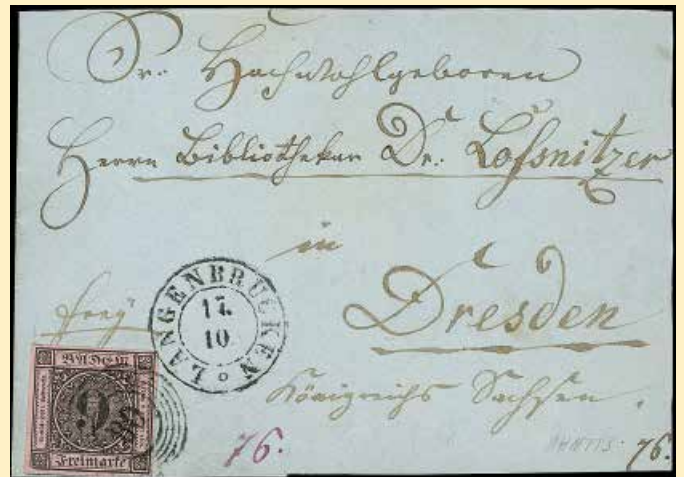 Sr. Hochwohlgeboren
Herrn Bibliothekar Dr. Loſsnitzer
in
Dresden
Königreichs Sachsen.
frey
LANGENBRÜCKEN
17.
10
Baden
9
80
Freimarke
76.
76.